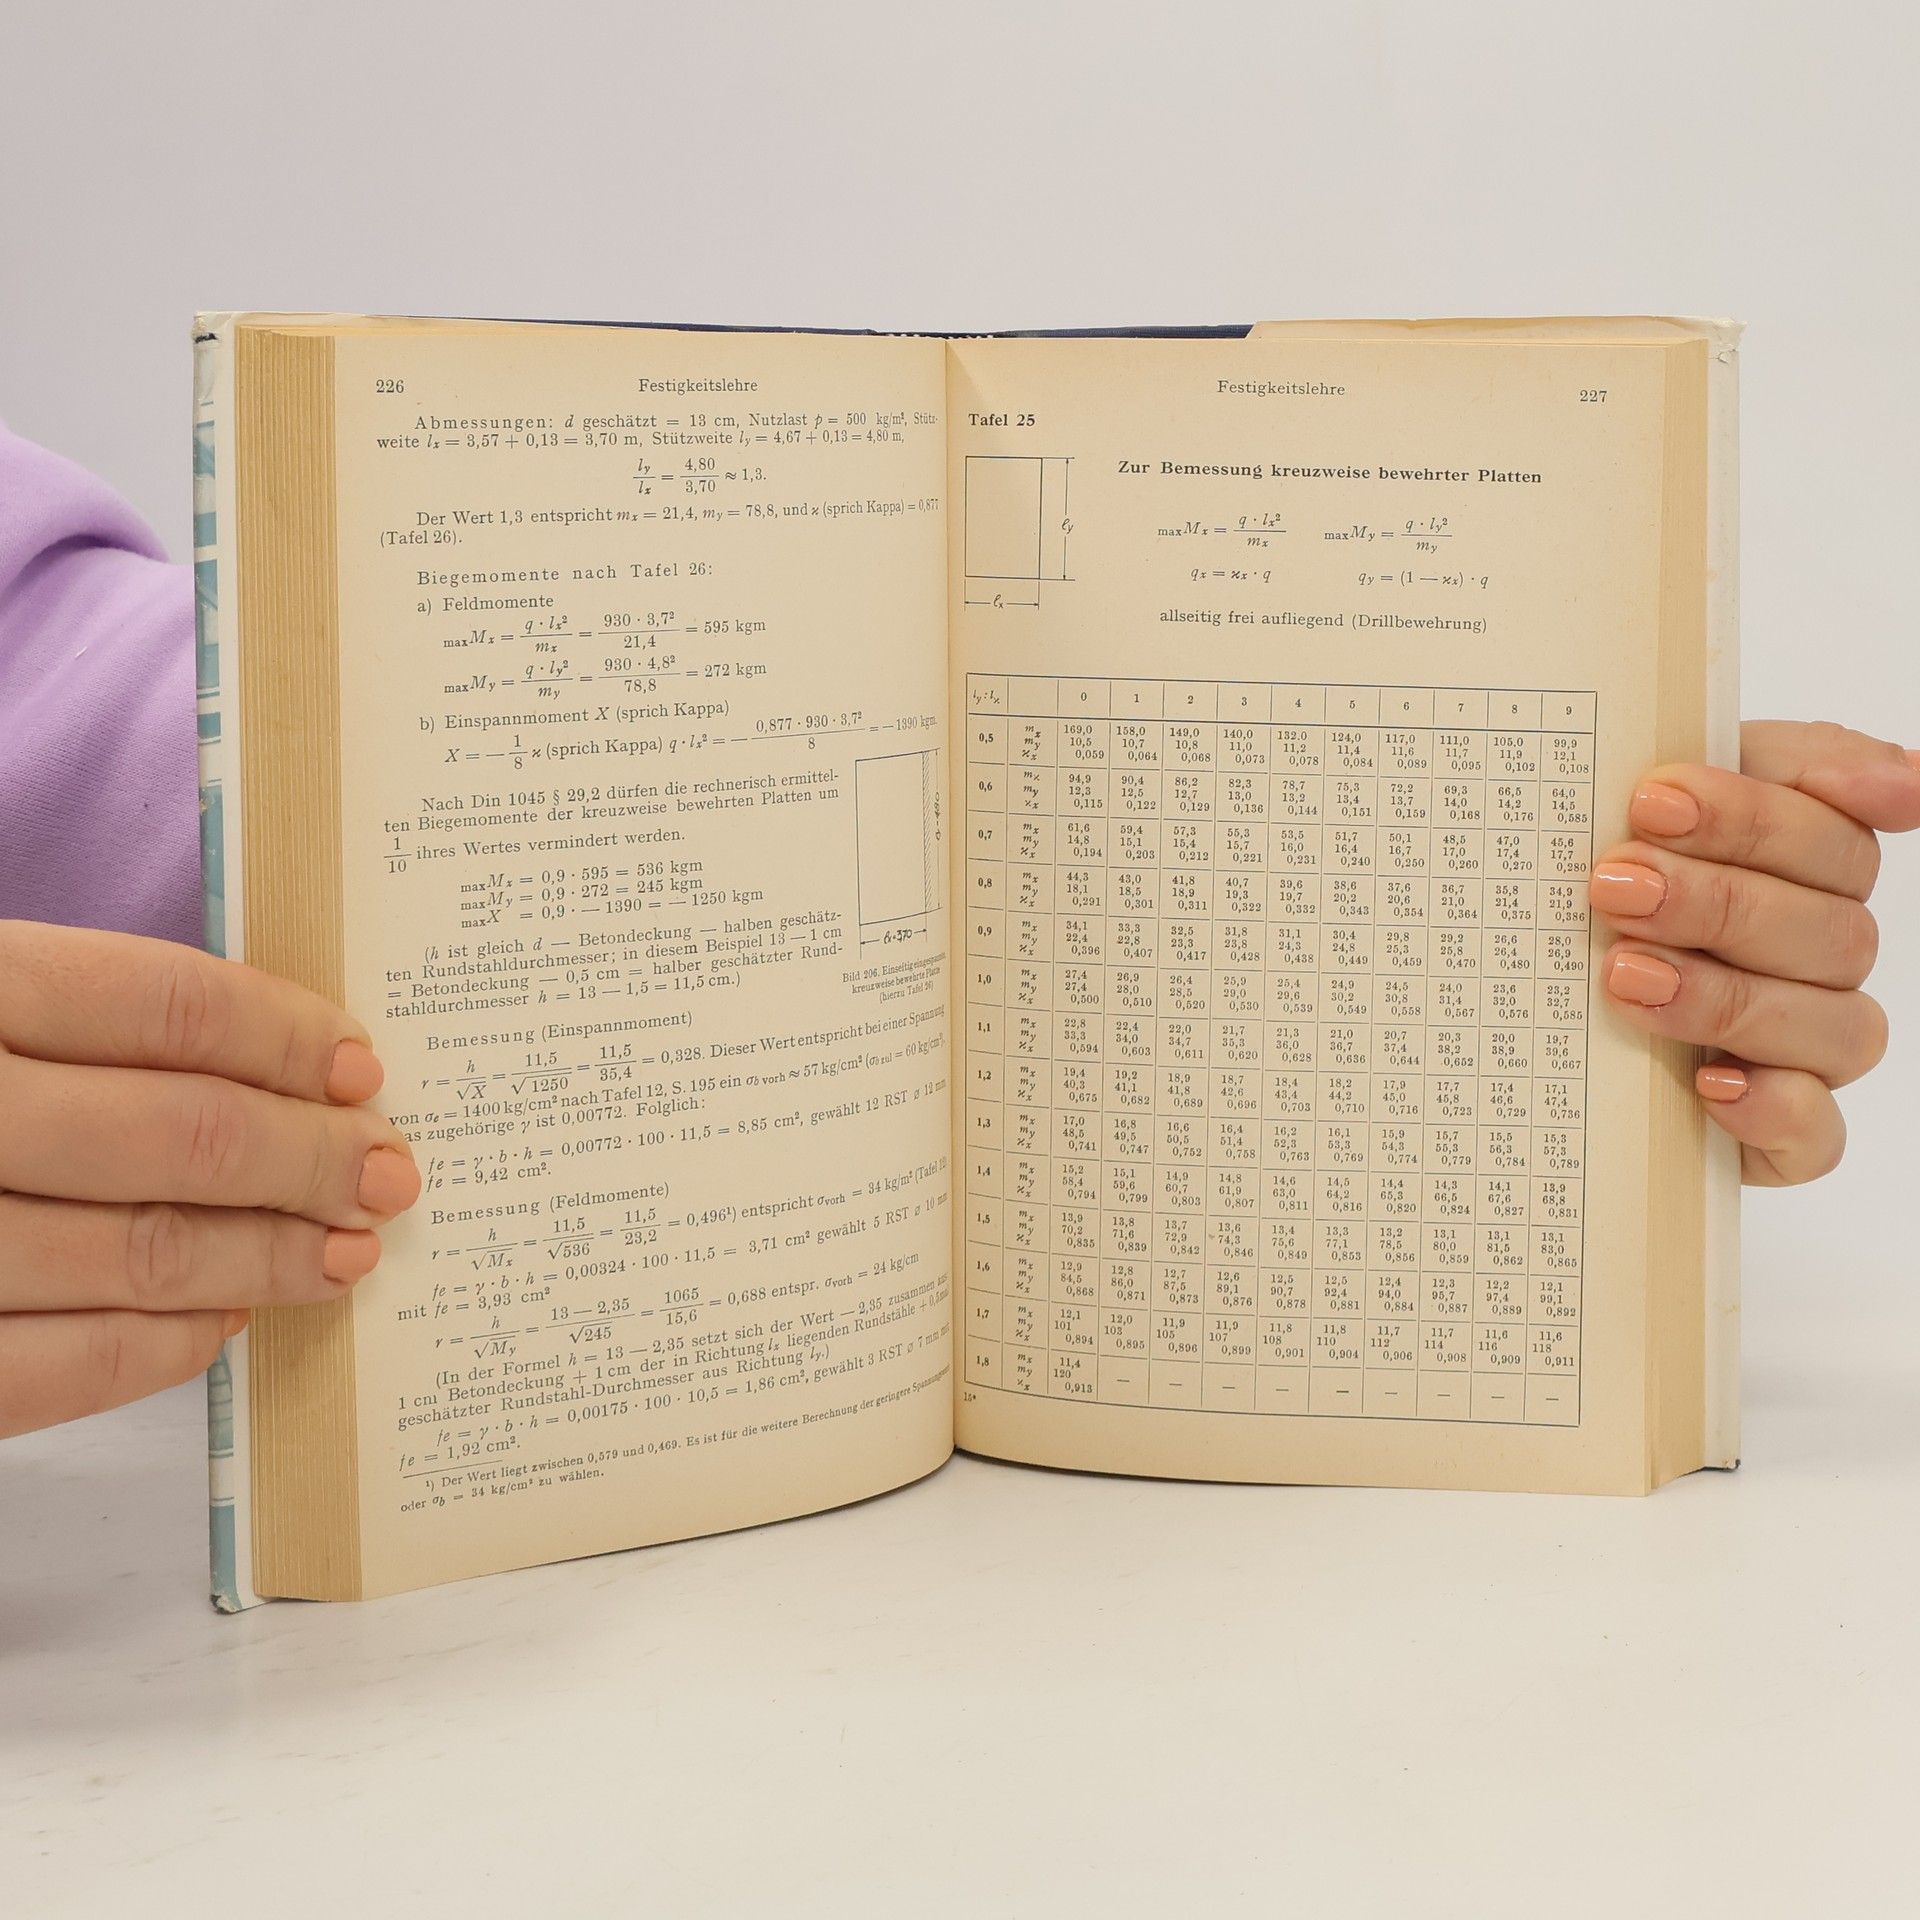 226
Festigkeitslehre
Abmessungen: d geschätzt = 13 cm, Nutzlast p = 500 kg/m², Stütz-
weite lx = 3,57 + 0,13 = 3,70 m, Stützweite ly = 4,67 + 0,13 = 4,80 m,
ly/lx = 4,80/3,70 ≈ 1,3.
Der Wert 1,3 entspricht mx = 21,4, my = 78,8, und ϰ (sprich Kappa) = 0,877
(Tafel 26).
Biegemomente nach Tafel 26:
a) Feldmomente
maxMx = q · lx²/mx = 930 · 3,7²/21,4 = 595 kgm
maxMy = q · ly²/my = 930 · 4,8²/78,8 = 272 kgm
b) Einspannmoment X (sprich Kappa)
X = — 1/8 ϰ (sprich Kappa) q · lx² = — 0,877 · 930 · 3,7²/8 = — 1390 kgm.
Nach Din 1045 § 29,2 dürfen die rechnerisch ermittel-
ten Biegemomente der kreuzweise bewehrten Platten um
1/10 ihres Wertes vermindert werden.
maxMx = 0,9 · 595 = 536 kgm
maxMy = 0,9 · 272 = 245 kgm
maxX = 0,9 · — 1390 = — 1250 kgm
(h ist gleich d — Betondeckung — halben geschätz-
ten Rundstahldurchmesser; in diesem Beispiel 13 — 1 cm
= Betondeckung — 0,5 cm = halber geschätzter Rund-
stahldurchmesser h = 13 — 1,5 = 11,5 cm.)
lx=370
Bild 206. Einseitig eingespannte
kreuzweise bewehrte Platte
(hierzu Tafel 26)
Bemessung (Einspannmoment)
r = h/√X = 11,5/√1250 = 11,5/35,4 = 0,328. Dieser Wert entspricht bei einer Spannung
von σe = 1400 kg/cm² nach Tafel 12, S. 195 ein σb vorh ≈ 57 kg/cm² (σb zul = 60 kg/cm²).
as zugehörige γ ist 0,00772. Folglich:
fe = γ · b · h = 0,00772 · 100 · 11,5 = 8,85 cm², gewählt 12 RST ⌀ 12 mm
fe = 9,42 cm².
Bemessung (Feldmomente)
r = h/√Mx = 11,5/√536 = 11,5/23,2 = 0,496¹) entspricht σvorh = 34 kg/m² (Tafel 12)
fe = γ · b · h = 0,00324 · 100 · 11,5 = 3,71 cm² gewählt 5 RST ⌀ 10 mm
mit fe = 3,93 cm²
r = h/√My = 13 — 2,35/√245 = 1065/15,6 = 0,688 entspr. σvorh = 24 kg/cm
(In der Formel h = 13 — 2,35 setzt sich der Wert — 2,35 zusammen aus
1 cm Betondeckung + 1 cm der in Richtung lx liegenden Rundstähle +
geschätzter Rundstahl-Durchmesser aus Richtung ly.)
fe = γ · b · h = 0,00175 · 100 · 10,5 = 1,86 cm², gewählt 3 RST ⌀ 7 mm mit
fe = 1,92 cm².
¹) Der Wert liegt zwischen 0,579 und 0,469. Es ist für die weitere Berechnung der geringere
oder σb = 34 kg/cm² zu wählen.
Festigkeitslehre
227
Tafel 25
ly
lx
Zur Bemessung kreuzweise bewehrter Platten
maxMx = q · lx²/mx maxMy = q · ly²/my
qx = ϰx · q qy = (1 — ϰx) · q
allseitig frei aufliegend (Drillbewehrung)
ly : lx 0 1 2 3 4 5 6 7 8 9
0,5 mx 169,0 158,0 149,0 140,0 132.0 124,0 117,0 111,0 105.0 99,9
my 10,5 10,7 10,8 11,0 11,2 11,4 11,6 11,7 11,9 12,1
ϰx 0,059 0,064 0,068 0,073 0,078 0,084 0,089 0,095 0,102 0,108
0,6 mx 94,9 90,4 86,2 82,3 78,7 75,3 72,2 69,3 66,5 64,0
my 12,3 12,5 12,7 13,0 13,2 13,4 13,7 14,0 14,2 14,5
ϰx 0,115 0,122 0,129 0,136 0,144 0,151 0,159 0,168 0,176 0,585
0,7 mx 61,6 59,4 57,3 55,3 53,5 51,7 50,1 48,5 47,0 45,6
my 14,8 15,1 15,4 15,7 16,0 16,4 16,7 17,0 17,4 17,7
ϰx 0,194 0,203 0,212 0,221 0,231 0,240 0,250 0,260 0,270 0,280
0,8 mx 44,3 43,0 41,8 40,7 39,6 38,6 37,6 36,7 35,8 34,9
my 18,1 18,5 18,9 19,3 19,7 20,2 20,6 21,0 21,4 21,9
ϰx 0,291 0,301 0,311 0,322 0,332 0,343 0,354 0,364 0,375 0,386
0,9 mx 34,1 33,3 32,5 31,8 31,1 30,4 29,8 29,2 26,6 28,0
my 22,4 22,8 23,3 23,8 24,3 24,8 25,3 25,8 26,4 26,9
ϰx 0,396 0,407 0,417 0,428 0,438 0,449 0,459 0,470 0,480 0,490
1,0 mx 27,4 26,9 26,4 25,9 25,4 24,9 24,5 24,0 23,6 23,2
my 27,4 28,0 28,5 29,0 29,6 30,2 30,8 31,4 32,0 32,7
ϰx 0,500 0,510 0,520 0,530 0,539 0,549 0,558 0,567 0,576 0,585
1,1 mx 22,8 22,4 22,0 21,7 21,3 21,0 20,7 20,3 20,0 19,7
my 33,3 34,0 34,7 35,3 36,0 36,7 37,4 38,2 38,9 39,6
ϰx 0,594 0,603 0,611 0,620 0,628 0,636 0,644 0,652 0,660 0,667
1,2 mx 19,4 19,2 18,9 18,7 18,4 18,2 17,9 17,7 17,4 17,1
my 40,3 41,1 41,8 42,6 43,4 44,2 45,0 45,8 46,6 47,4
ϰx 0,675 0,682 0,689 0,696 0,703 0,710 0,716 0,723 0,729 0,736
1,3 mx 17,0 16,8 16,6 16,4 16,2 16,1 15,9 15,7 15,5 15,3
my 48,5 49,5 50,5 51,4 52,3 53,3 54,3 55,3 56,3 57,3
ϰx 0,741 0,747 0,752 0,758 0,763 0,769 0,774 0,779 0,784 0,789
1,4 mx 15,2 15,1 14,9 14,8 14,6 14,5 14,4 14,3 14,1 13,9
my 58,4 59,6 60,7 61,9 63,0 64,2 65,3 66,5 67,6 68,8
ϰx 0,794 0,799 0,803 0,807 0,811 0,816 0,820 0,824 0,827 0,831
1,5 mx 13,9 13,8 13,7 13,6 13,4 13,3 13,2 13,1 13,1 13,1
my 70,2 71,6 72,9 74,3 75,6 77,1 78,5 80,0 81,5 83,0
ϰx 0,835 0,839 0,842 0,846 0,849 0,853 0,856 0,859 0,862 0,865
1,6 mx 12,9 12,8 12,7 12,6 12,5 12,5 12,4 12,3 12,2 12,1
my 84,5 86,0 87,5 89,1 90,7 92,4 94,0 95,7 97,4 99,1
ϰx 0,868 0,871 0,873 0,876 0,878 0,881 0,884 0,887 0,889 0,892
1,7 mx 12,1 12,0 11,9 11,9 11,8 11,8 11,7 11,7 11,6 11,6
my 101 103 105 107 108 110 112 114 116 118
ϰx 0,894 0,895 0,896 0,899 0,901 0,904 0,906 0,908 0,909 0,911
1,8 mx 11,4 — — — — — — — — —
my 120
ϰx 0,913
15*